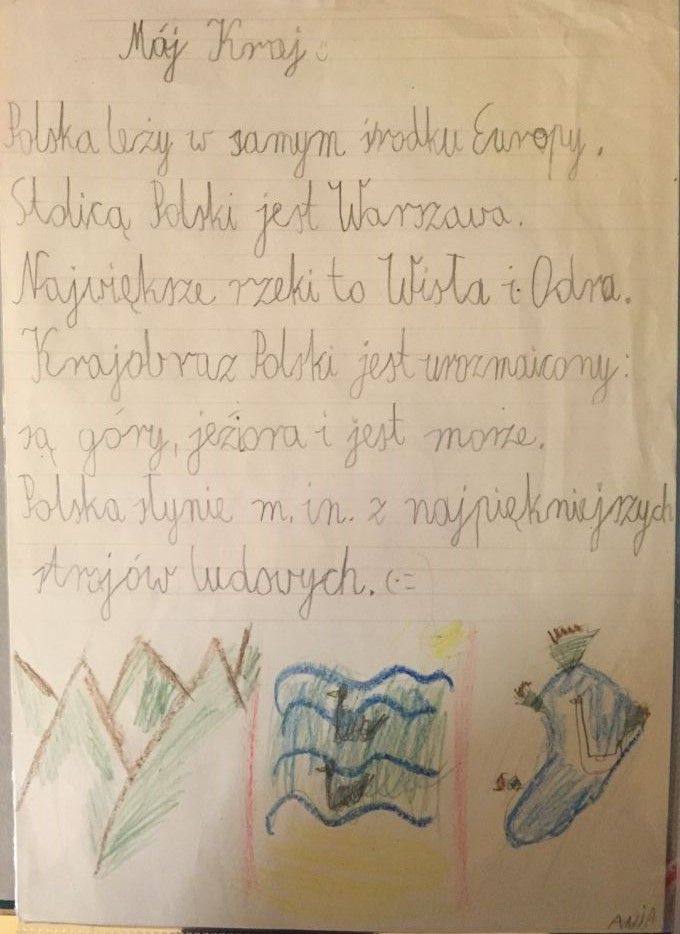 Mój Kraj :
Polska leży w samym środku Europy.
Stolicą Polski jest Warszawa.
Największe rzeki to Wisła i Odra.
Krajobraz Polski jest urozmaicony:
są góry, jeźiora i jest morze.
Polska słynie m.in. z najpiękniejszych
strojów ludowych. (:=
ANIA